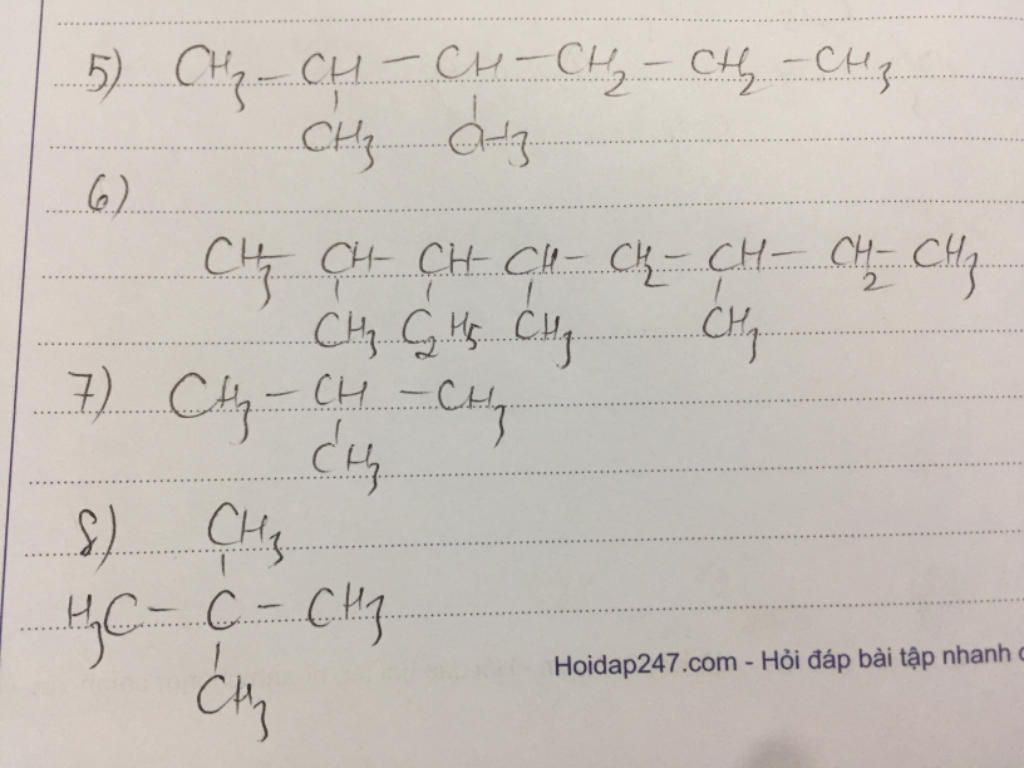 5) CH3 – CH – CH – CH2 – CH2 – CH3
CH3 CH3
6)
CH3 – CH – CH – CH – CH2 – CH – CH2 – CH3
CH3 C2H5 CH3 CH3
7) CH3 – CH – CH3
CH3
8) CH3
H3C – C – CH3
CH3
Hoidap247.com - Hỏi đáp bài tập nhanh